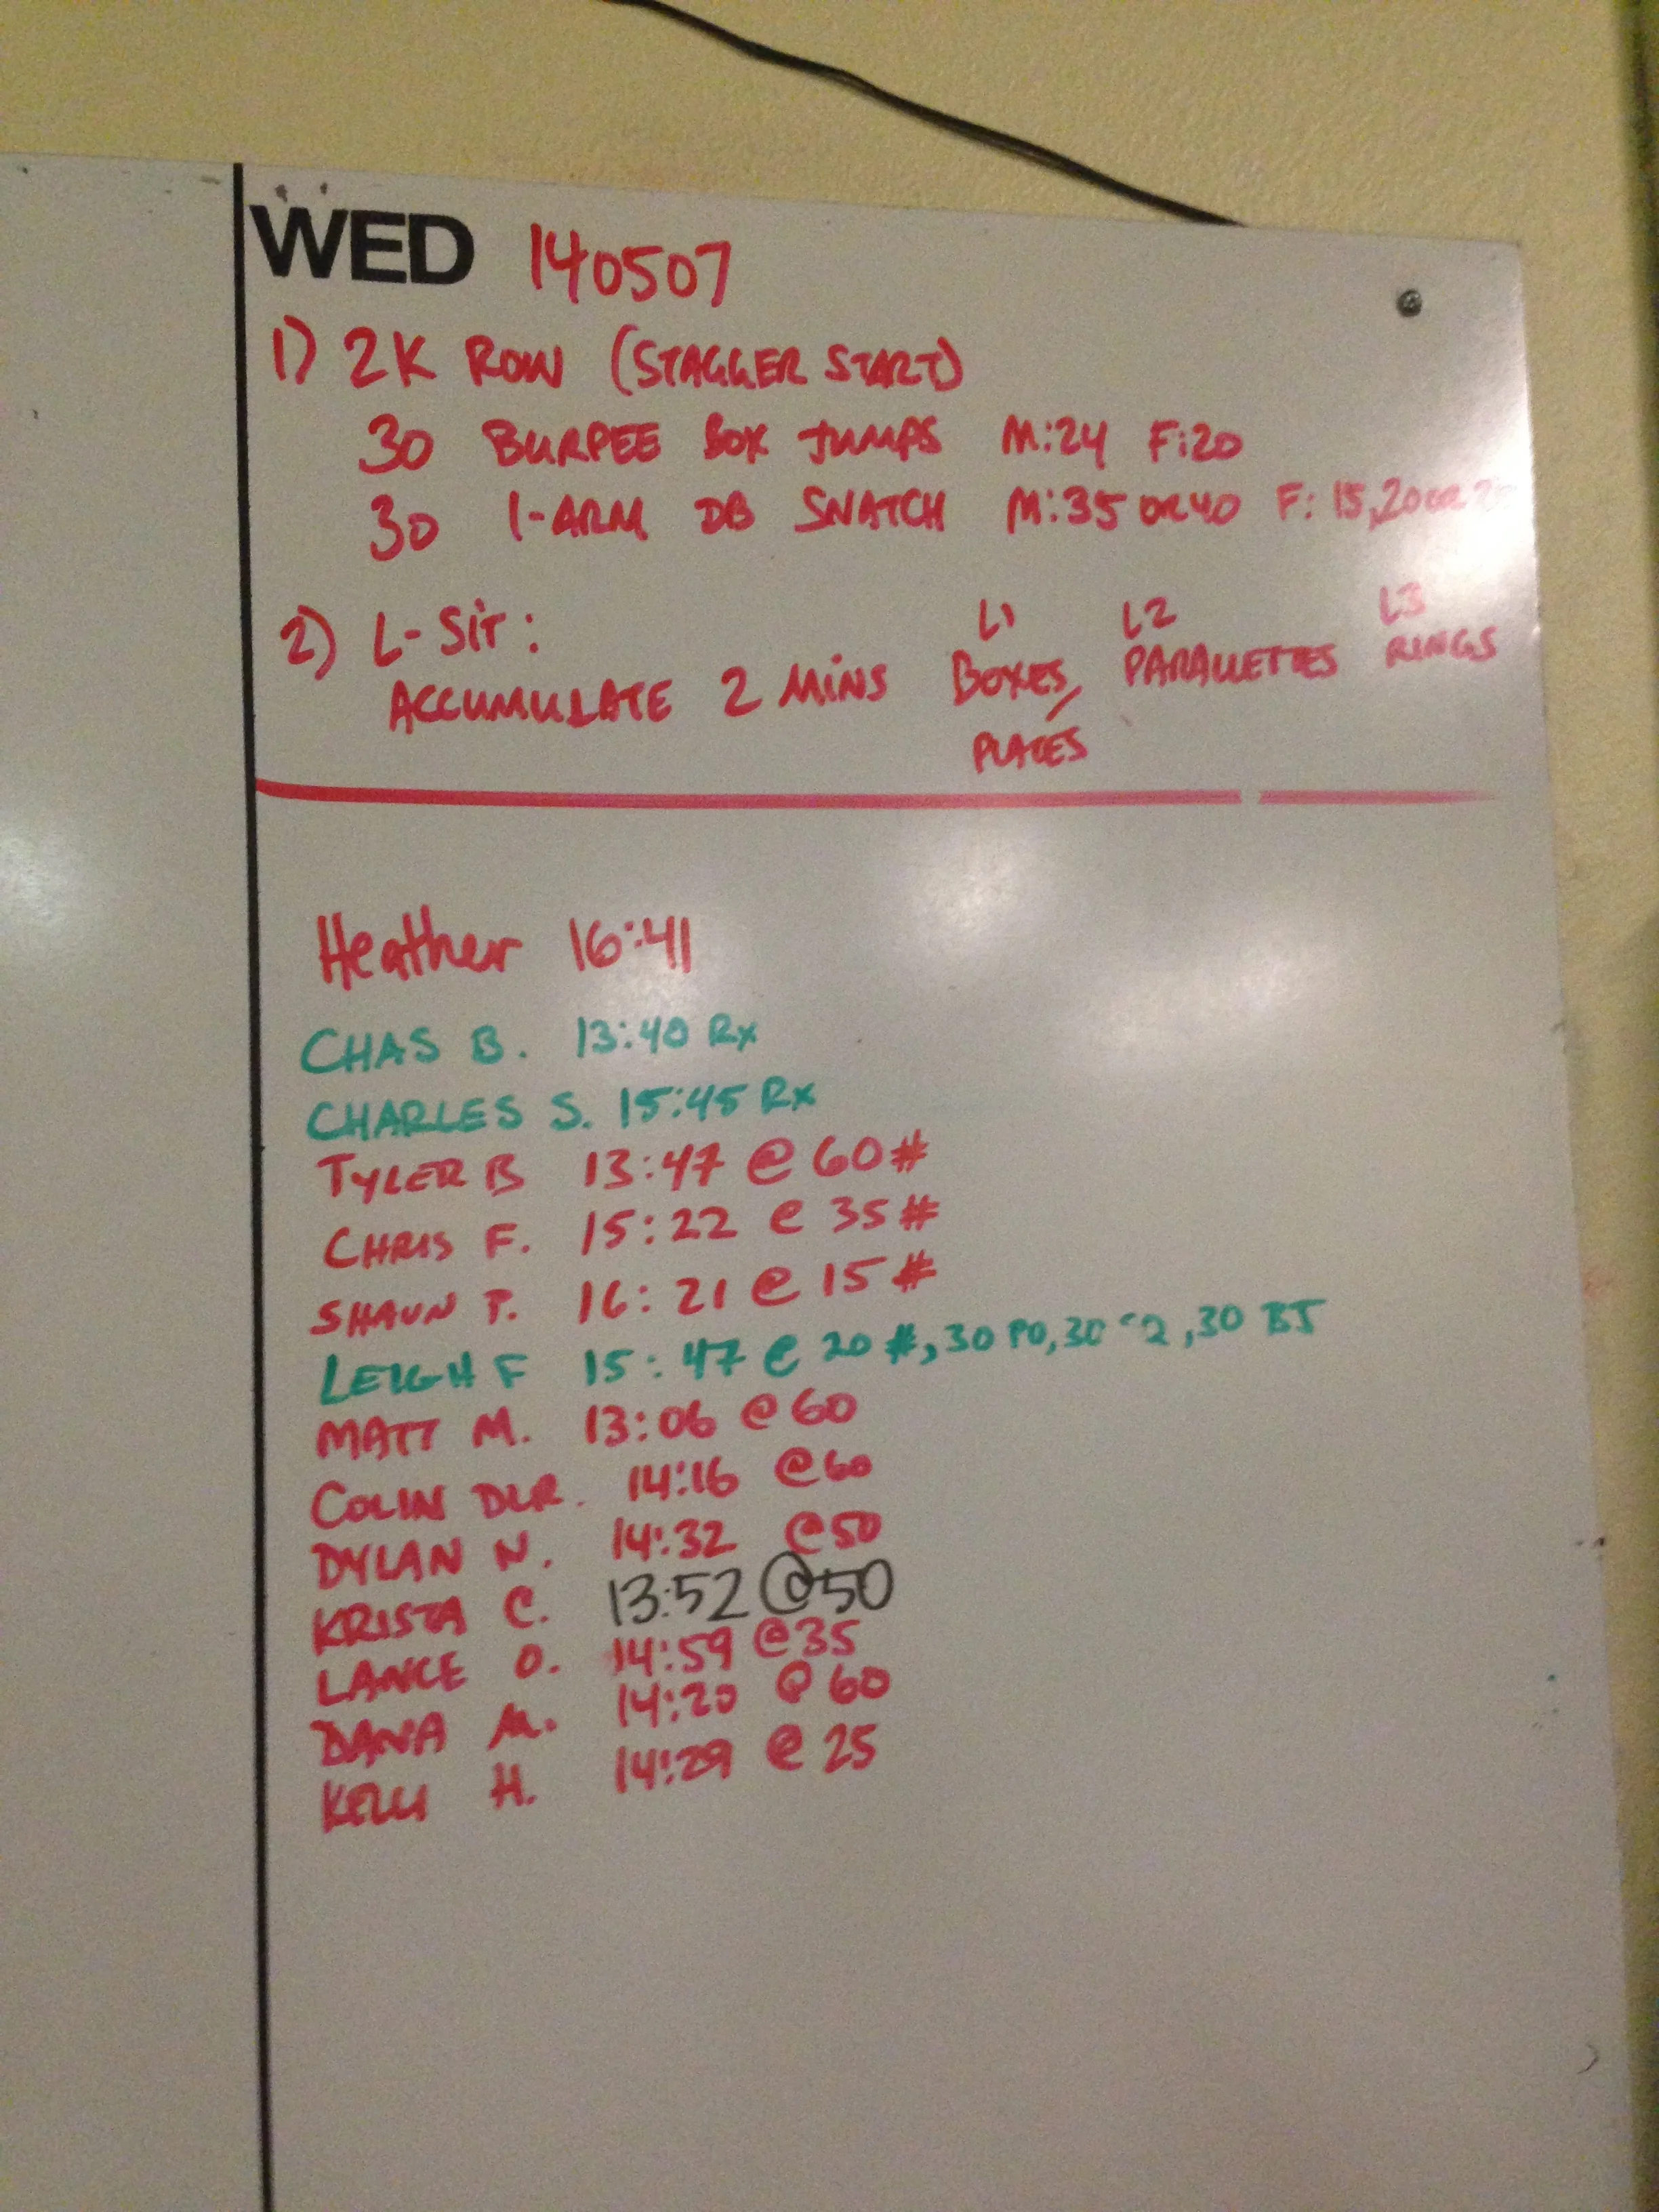 WED 140507
1) 2K ROW (STAGGER START)
30 BURPEE BOX JUMPS M:24 F:20
30 1-ARM DB SNATCH M:35 OR 40 F: 15,20 OR
2) L-SIT: L1 L2 L3
ACCUMULATE 2 MINS BOXES/ PARALLETTES RINGS
PLATES
Heather 16:41
CHAS B. 13:40 Rx
CHARLES S. 15:45 Rx
TYLER B 13:47 @ 60#
CHRIS F. 15:22 @ 35#
SHAUN P. 16:21 @ 15#
LEIGH F 15:47 @ 20#, 30 PO, 30 , 30 BJ
MATT M. 13:06 @ 60
COLIN DLR. 14:16 @60
DYLAN N. 14:32 @50
KRISTA C. 13:52 @50
LANCE O. 14:59 @35
DANA M. 14:20 @ 60
KELLI H. 14:29 @ 25